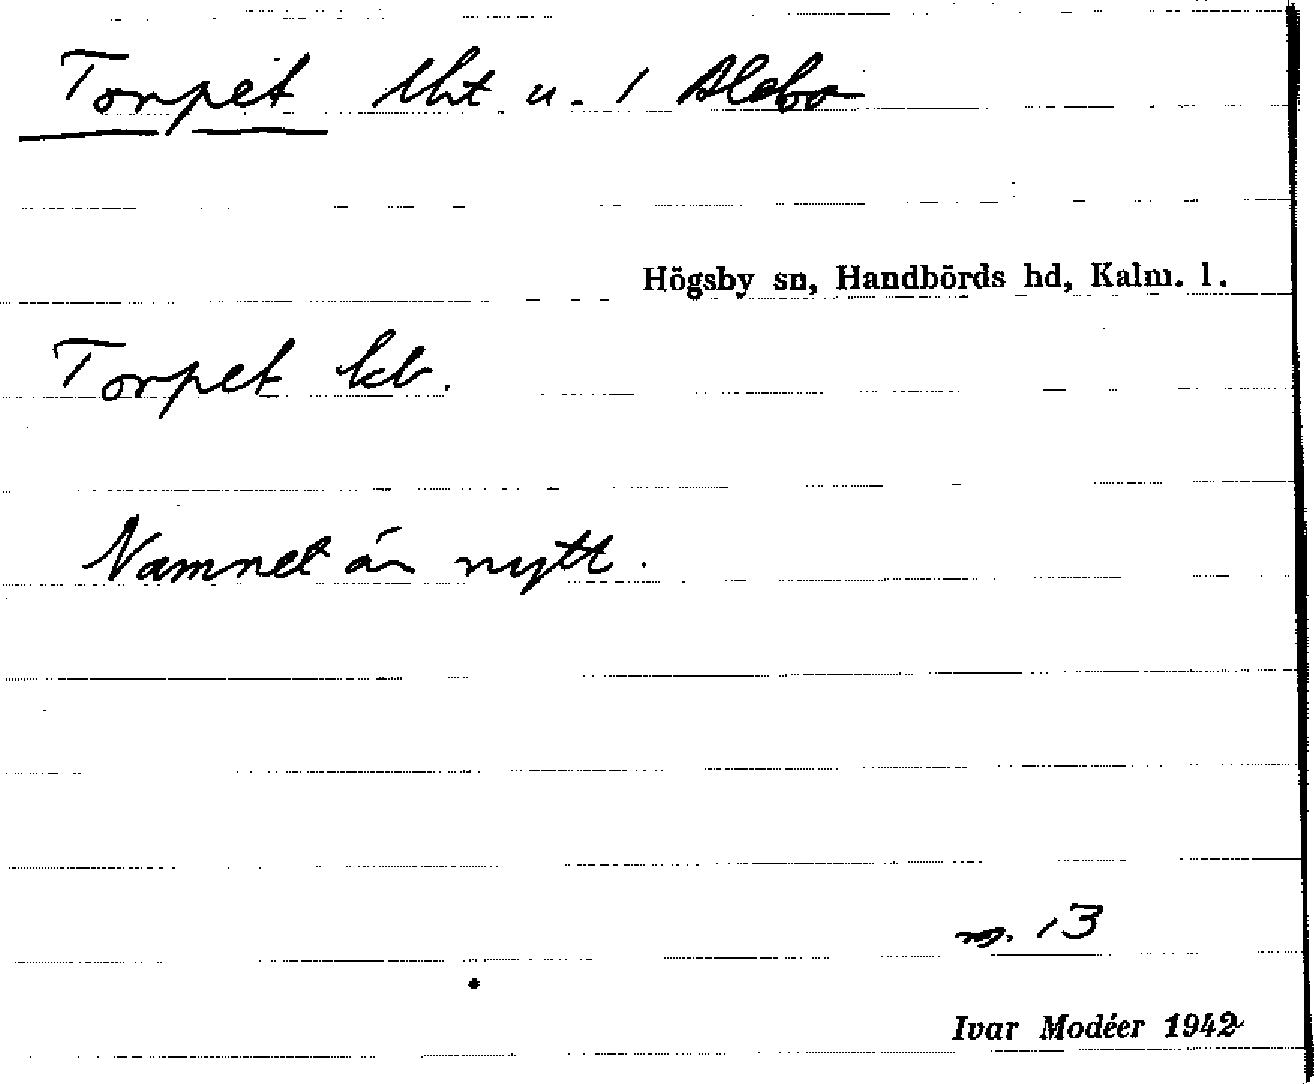 Torpet lht u. 1 Alebo
Högsby sn, Handbörds hd, Kalm. l.
Torpet kb.
Namnet är nytt.
13
Ivar Modéer 1942